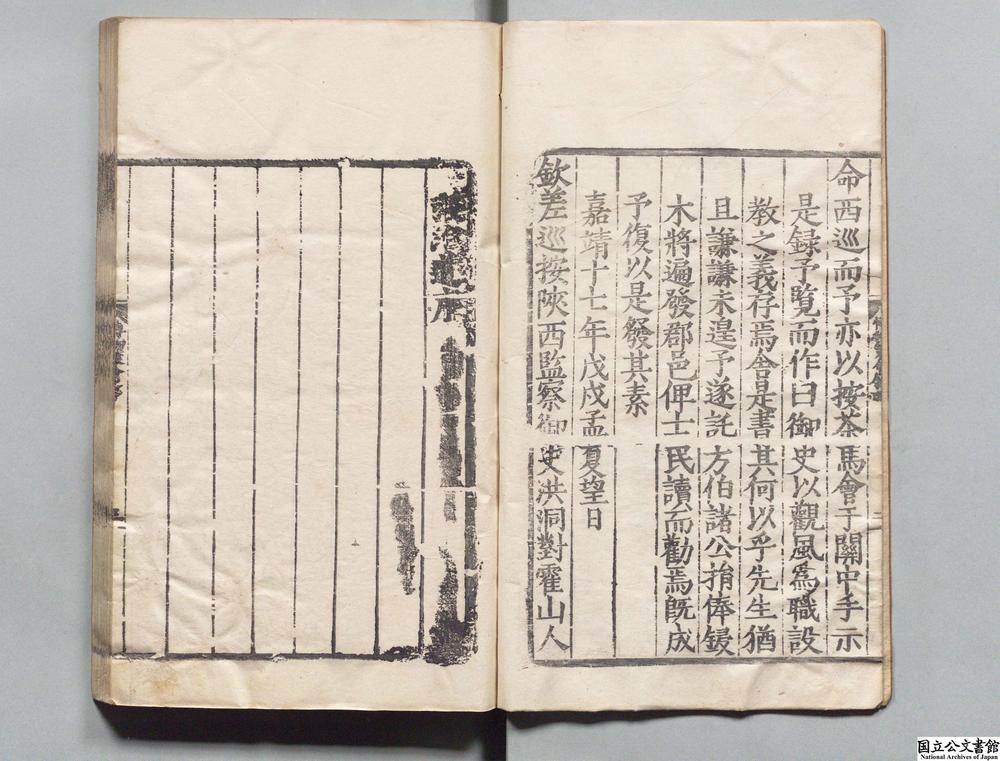 命西巡而予亦以按茶馬會于關中手示
是録予覽而作曰御史以觀風爲職設
教之義存焉舍是書其何以乎先生猶
且謙謙未遑予遂託方伯諸公捐俸鋟
木將遍發郡邑俾士民讀而勸焉旣成
予復以是發其素
嘉靖十七年戊戌孟夏望日
欽差巡按陜西監察御史洪洞對霍山人
序
国立公文書館
National Archives of Japan